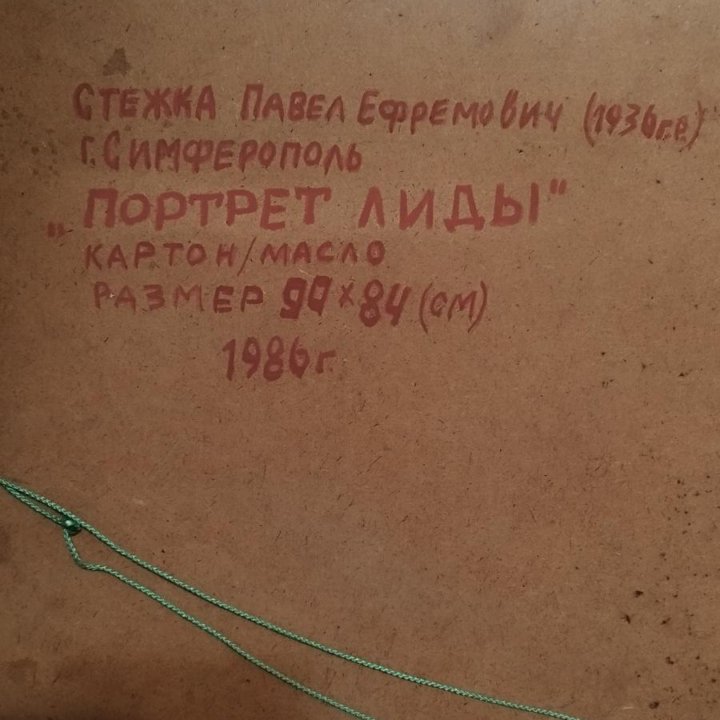 СТЕЖКА ПАВЕЛ ЕФРЕМОВИЧ (1936г.р.)
Г. СИМФЕРОПОЛЬ
„ПОРТРЕТ ЛИДЫ"
КАРТОН/МАСЛО
РАЗМЕР 90х84 (см)
1986г.